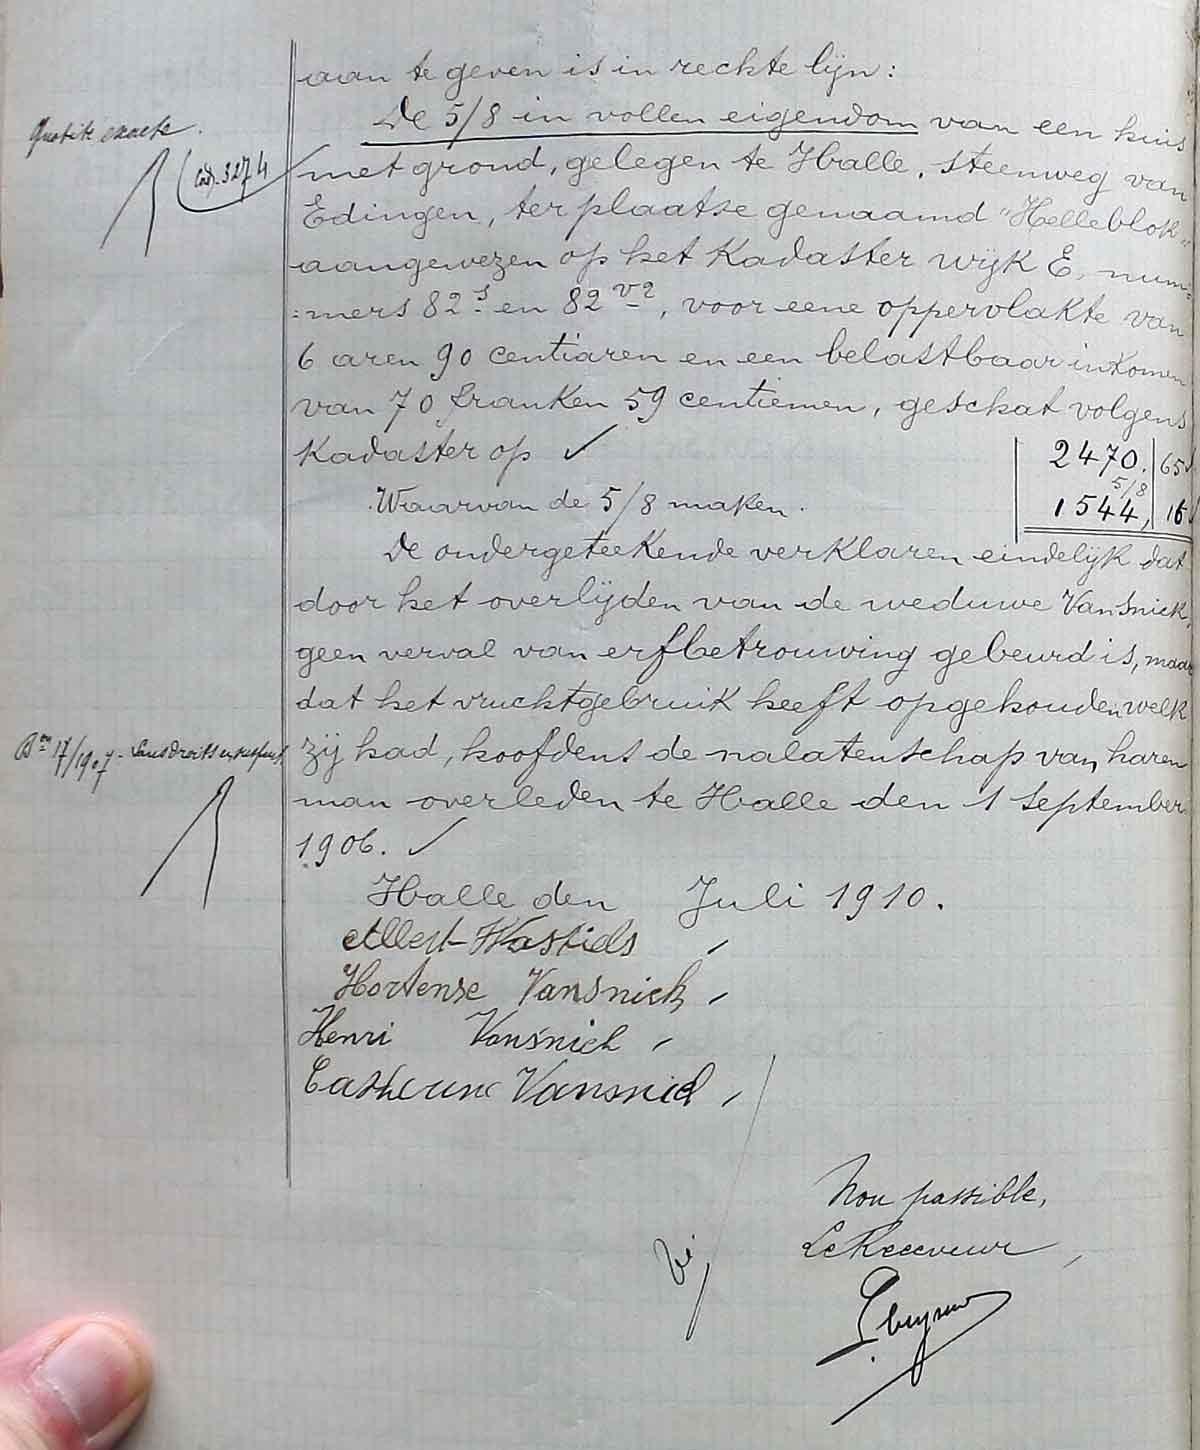 aan te geven is in rechte lijn:
De 5/8 in vollen eigendom van een huis
Quotité exacte.
Cas. 3274
met grond, gelegen te Halle, steenweg van
Edingen, ter plaatse genaamd "Helleblok"
aangewezen op het Kadaster wijk E, num=
=mers 82s en 82v2, voor eene oppervlakte van
6 aren 90 centiaren en een belastbaar inkomen
van 70 franken 59 centiemen, geschat volgens
Kadaster op ✓ 2470. 65
5/8
Waarvan de 5/8 maken. 1544, 16
De ondergeteekende verklaren eindelijk dat
door het overlijden van de weduwe Vansnick,
geen verval van erfbetrouwing gebeurd is, maar
dat het vruchtgebruik heeft opgehouden welk
17/1907 - Sans droits en suspens
zij had, hoofdens de nalatenschap van haren
man overleden te Halle den 1 September
1906. ✓
Halle den Juli 1910.
Albert
Hortense Vansnick
Henri Vansnick
Catherine Vansnick
Non passible,
Le Receveur